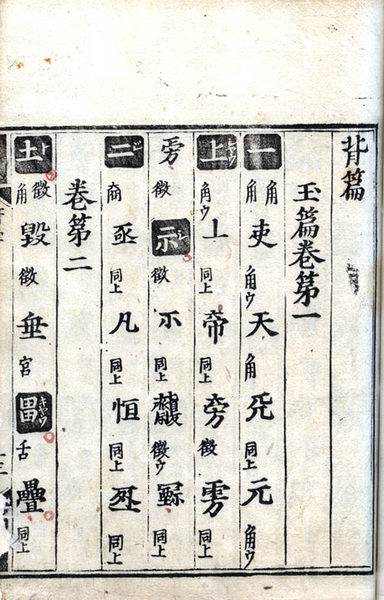 背篇
玉篇卷第一
一 角 角 吏 角ウ 天 角 同上 元 角ウ
上 シヤウ 角ウ 丄 同上 帝 同上 旁 徴 雱 同上
徴 示 徴 同上 徴ウ 同上
二 商 亟 同上 凡 同上 恒 同上 同上
卷第二
土 ト 徴 角 毀 徴 垂 宮 畕 キヤウ 舌 疊 同上